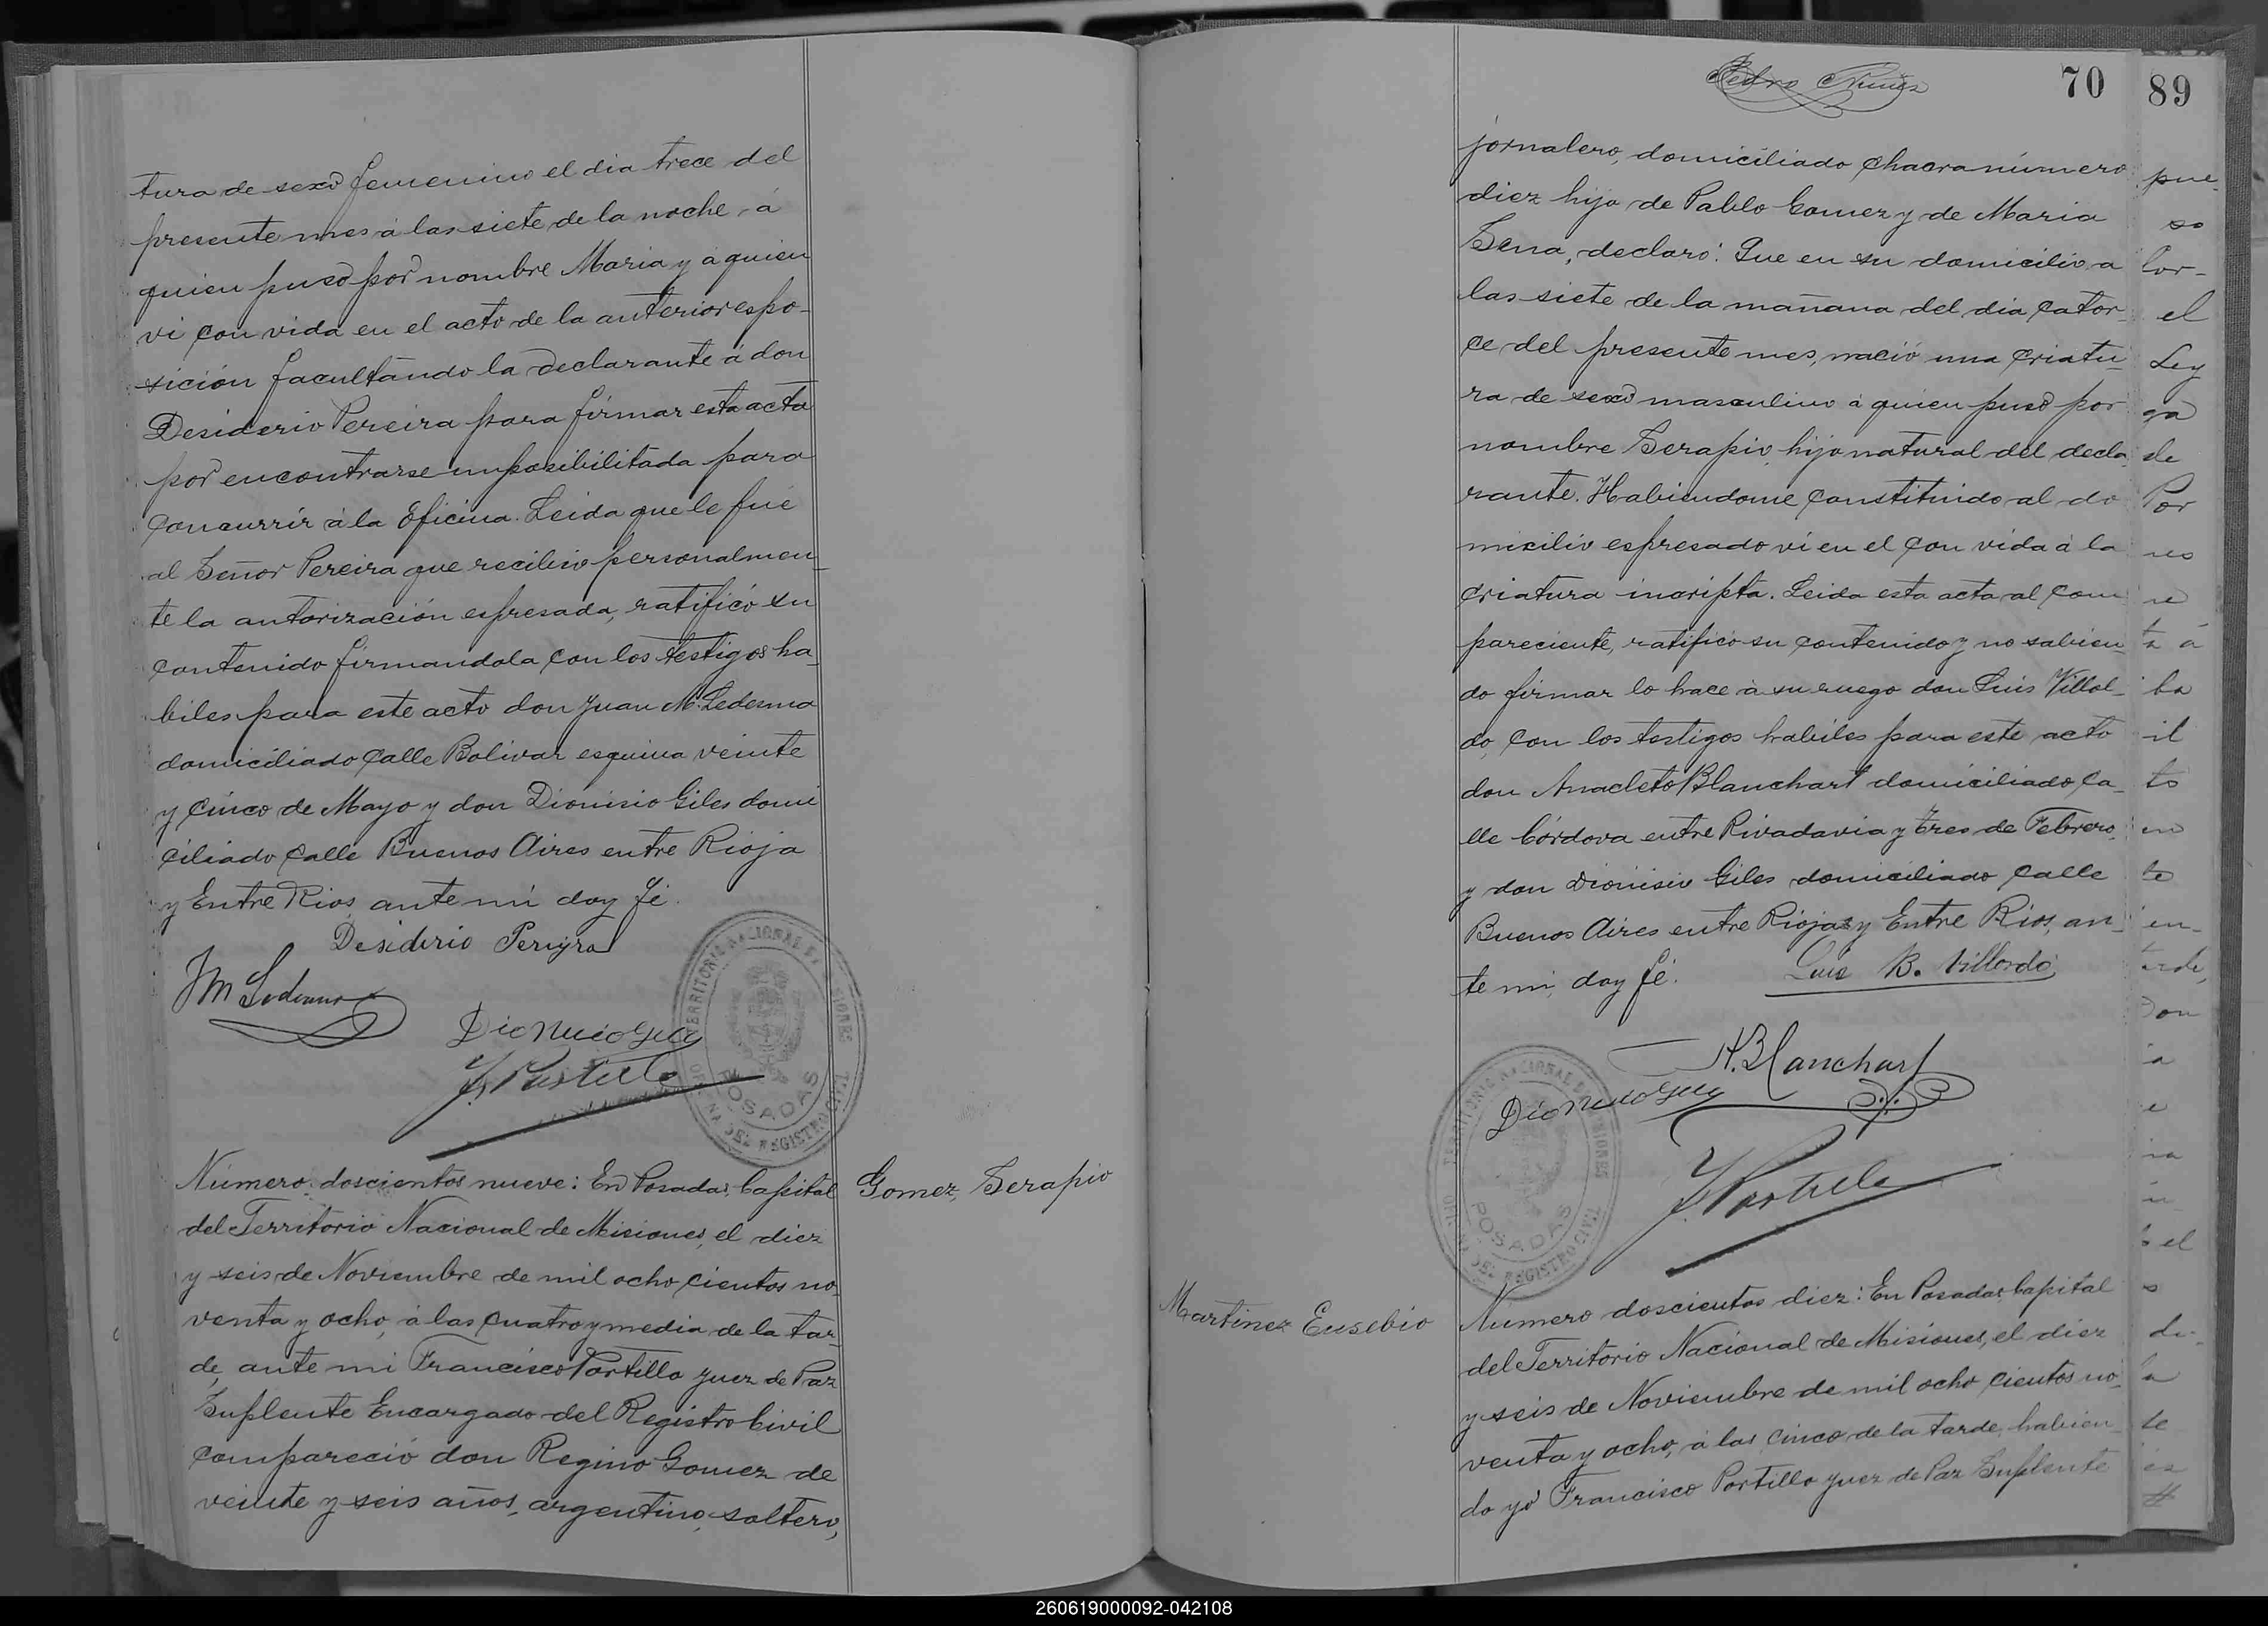 tura de sexo femenino el dia trece del
presente mes á las siete de la noche, á
quien puso por nombre Maria y á quien
vi con vida en el acto de la anterior espo-
sición facultando la declarante á don
Desiderio Pereira para firmar esta acta
por encontrarse imposibilitada para
concurrir á la Oficina. Leida que le fué
al Señor Pereira que recibió personalmen-
te la autorización espresada, ratificó su
contenido firmandola con los testigos ha-
biles para este acto don Juan M. Ledesma
domiciliado calle Bolivar esquina veinte
y cinco de Mayo y don Dionisio Giles domi
ciliado calle Buenos Aires entre Rioja
y Entre Rios, ante mi doy fé.
Desiderio Pereyra
J M Ledesma
Dionicio Giles
F. Portillo
TERRITORIO NACIONAL DE MISIONES
POSADAS
DEL REGISTRO CIVIL
Número doscientos nueve: En Posadas, Capital
del Territorio Nacional de Misiones, el diez
y seis de Noviembre de mil ocho cientos no-
venta y ocho, á las cuatro y media de la tar-
de, ante mi Francisco Portillo Juez de Paz
Suplente Encargado del Registro Civil
compareció don Regino Gomez de
veinte y seis años, argentino, soltero,
Gomez, Serapio
Pedro Nuñez
70
89
jornalero, domiciliado chacra número
diez hijo de Pablo Gomez y de Maria
Sena, declaró: Que en su domicilio a
las siete de la mañana del dia cator-
ce del presente mes, nació una criatu-
ra de sexo masculino á quien puso por
nombre Serapio, hijo natural del decla
rante. Habiendome constituido al do
micilio espresado vi en el con vida á la
criatura inscripta. Leida esta acta al com
pareciente, ratificó su contenido y no sabien-
do firmar lo hace á su ruego don Luis Villol-
do, con los testigos habiles para este acto
don Anacleto Blanchart domiciliado ca-
lle Córdova entre Rivadavia y Tres de Febrero
y don Dionisio Giles domiciliado calle
Buenos Aires entre Rioja y Entre Rios, an-
te mi, doy fé.
Luis B. Villordo
A. Blanchart
Dionicio Giles
F. Portillo
TERRITORIO NACIONAL DE MISIONES
POSADAS
DEL REGISTRO CIVIL
Martinez Eusebio
Número doscientos diez: En Posadas, Capital
del Territorio Nacional de Misiones, el diez
y seis de Noviembre de mil ocho cientos no-
venta y ocho, á las cinco de la tarde, habien-
do yo Francisco Portillo Juez de Paz Suplente
pue
so
lor-
el
Ley
ga
de
Por
260619000092-042108